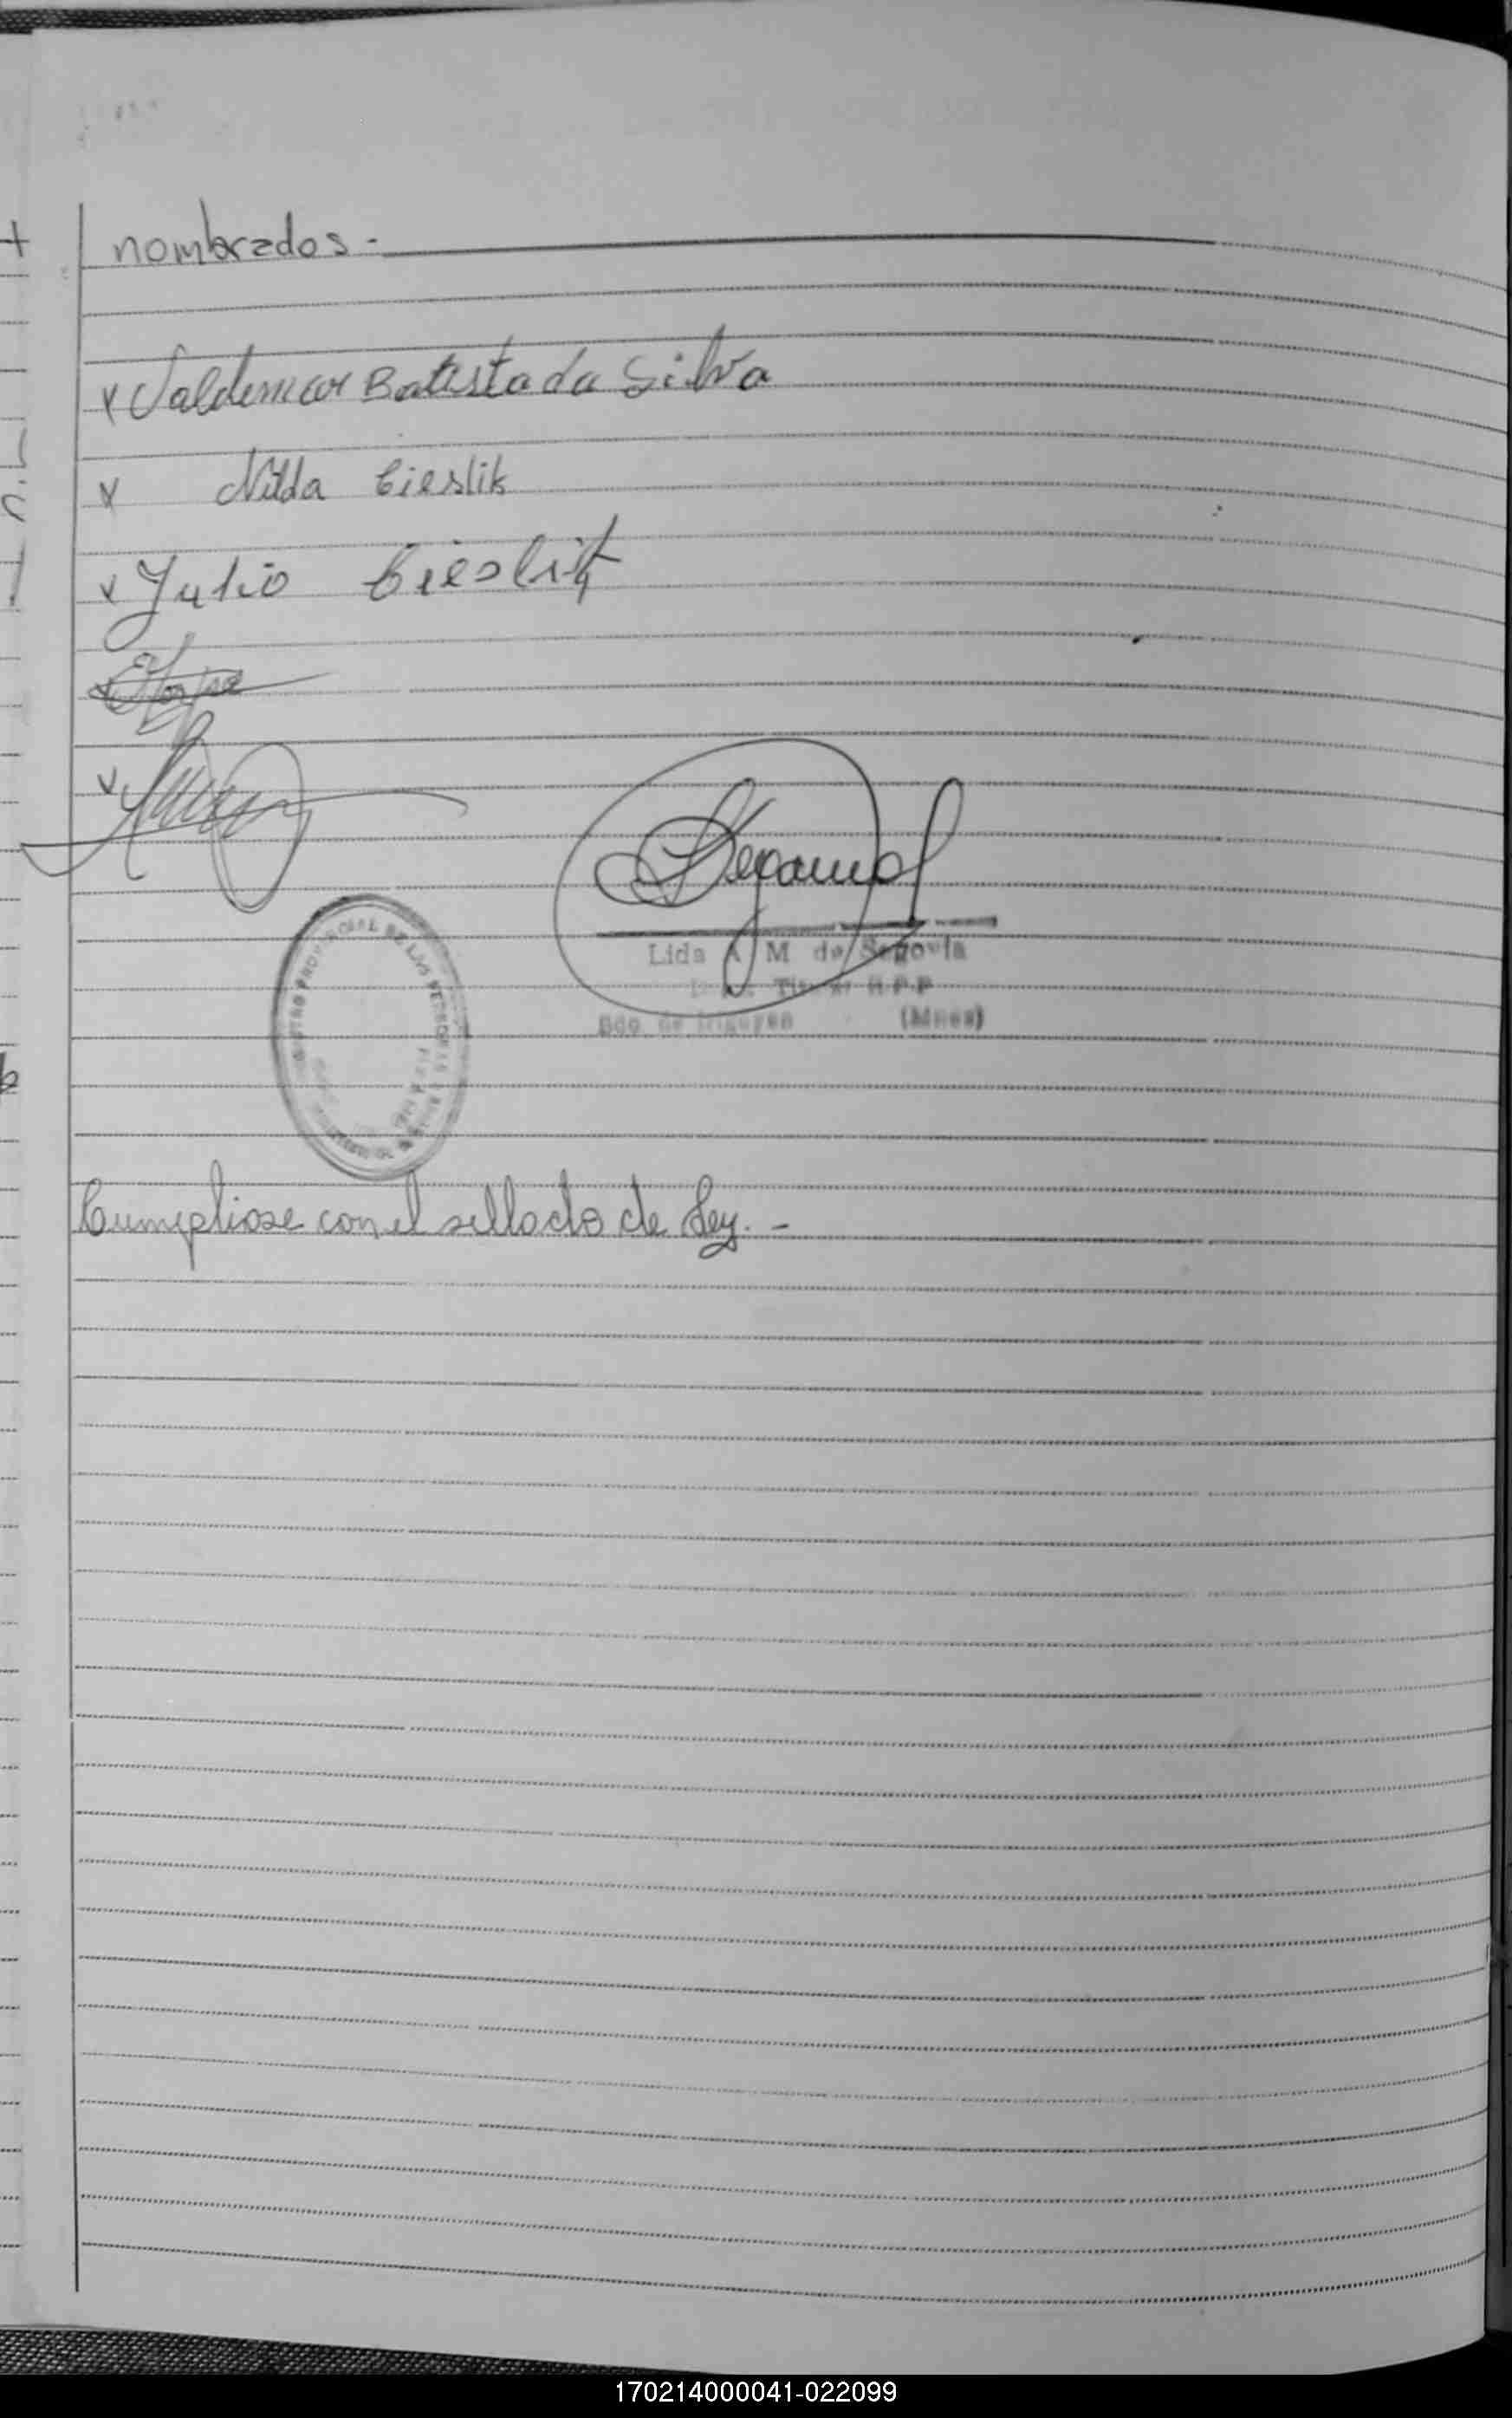 nombrados.-
x Valdemar Batista da Silva
x Nilda Cieslik
x Julio Cieslik
x
x
Lida A M de Segovia
Titular R.P.P
Bdo. de Irigoyen (Mnes)
REGISTRO PROVINCIAL DE LAS PERSONAS
Cumpliose con el sellado de Ley. -
170214000041-022099